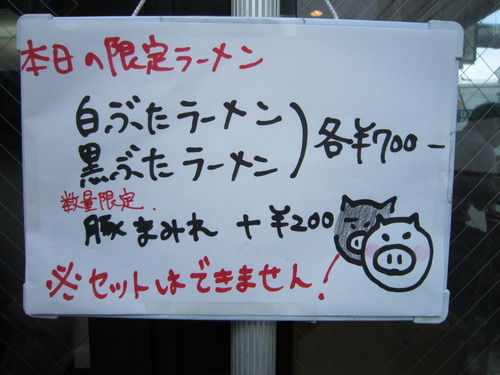 本日の限定ラーメン
白ぶたラーメン
黒ぶたラーメン
各¥700-
数量限定.
豚まみれ +¥200
※セットはできません!